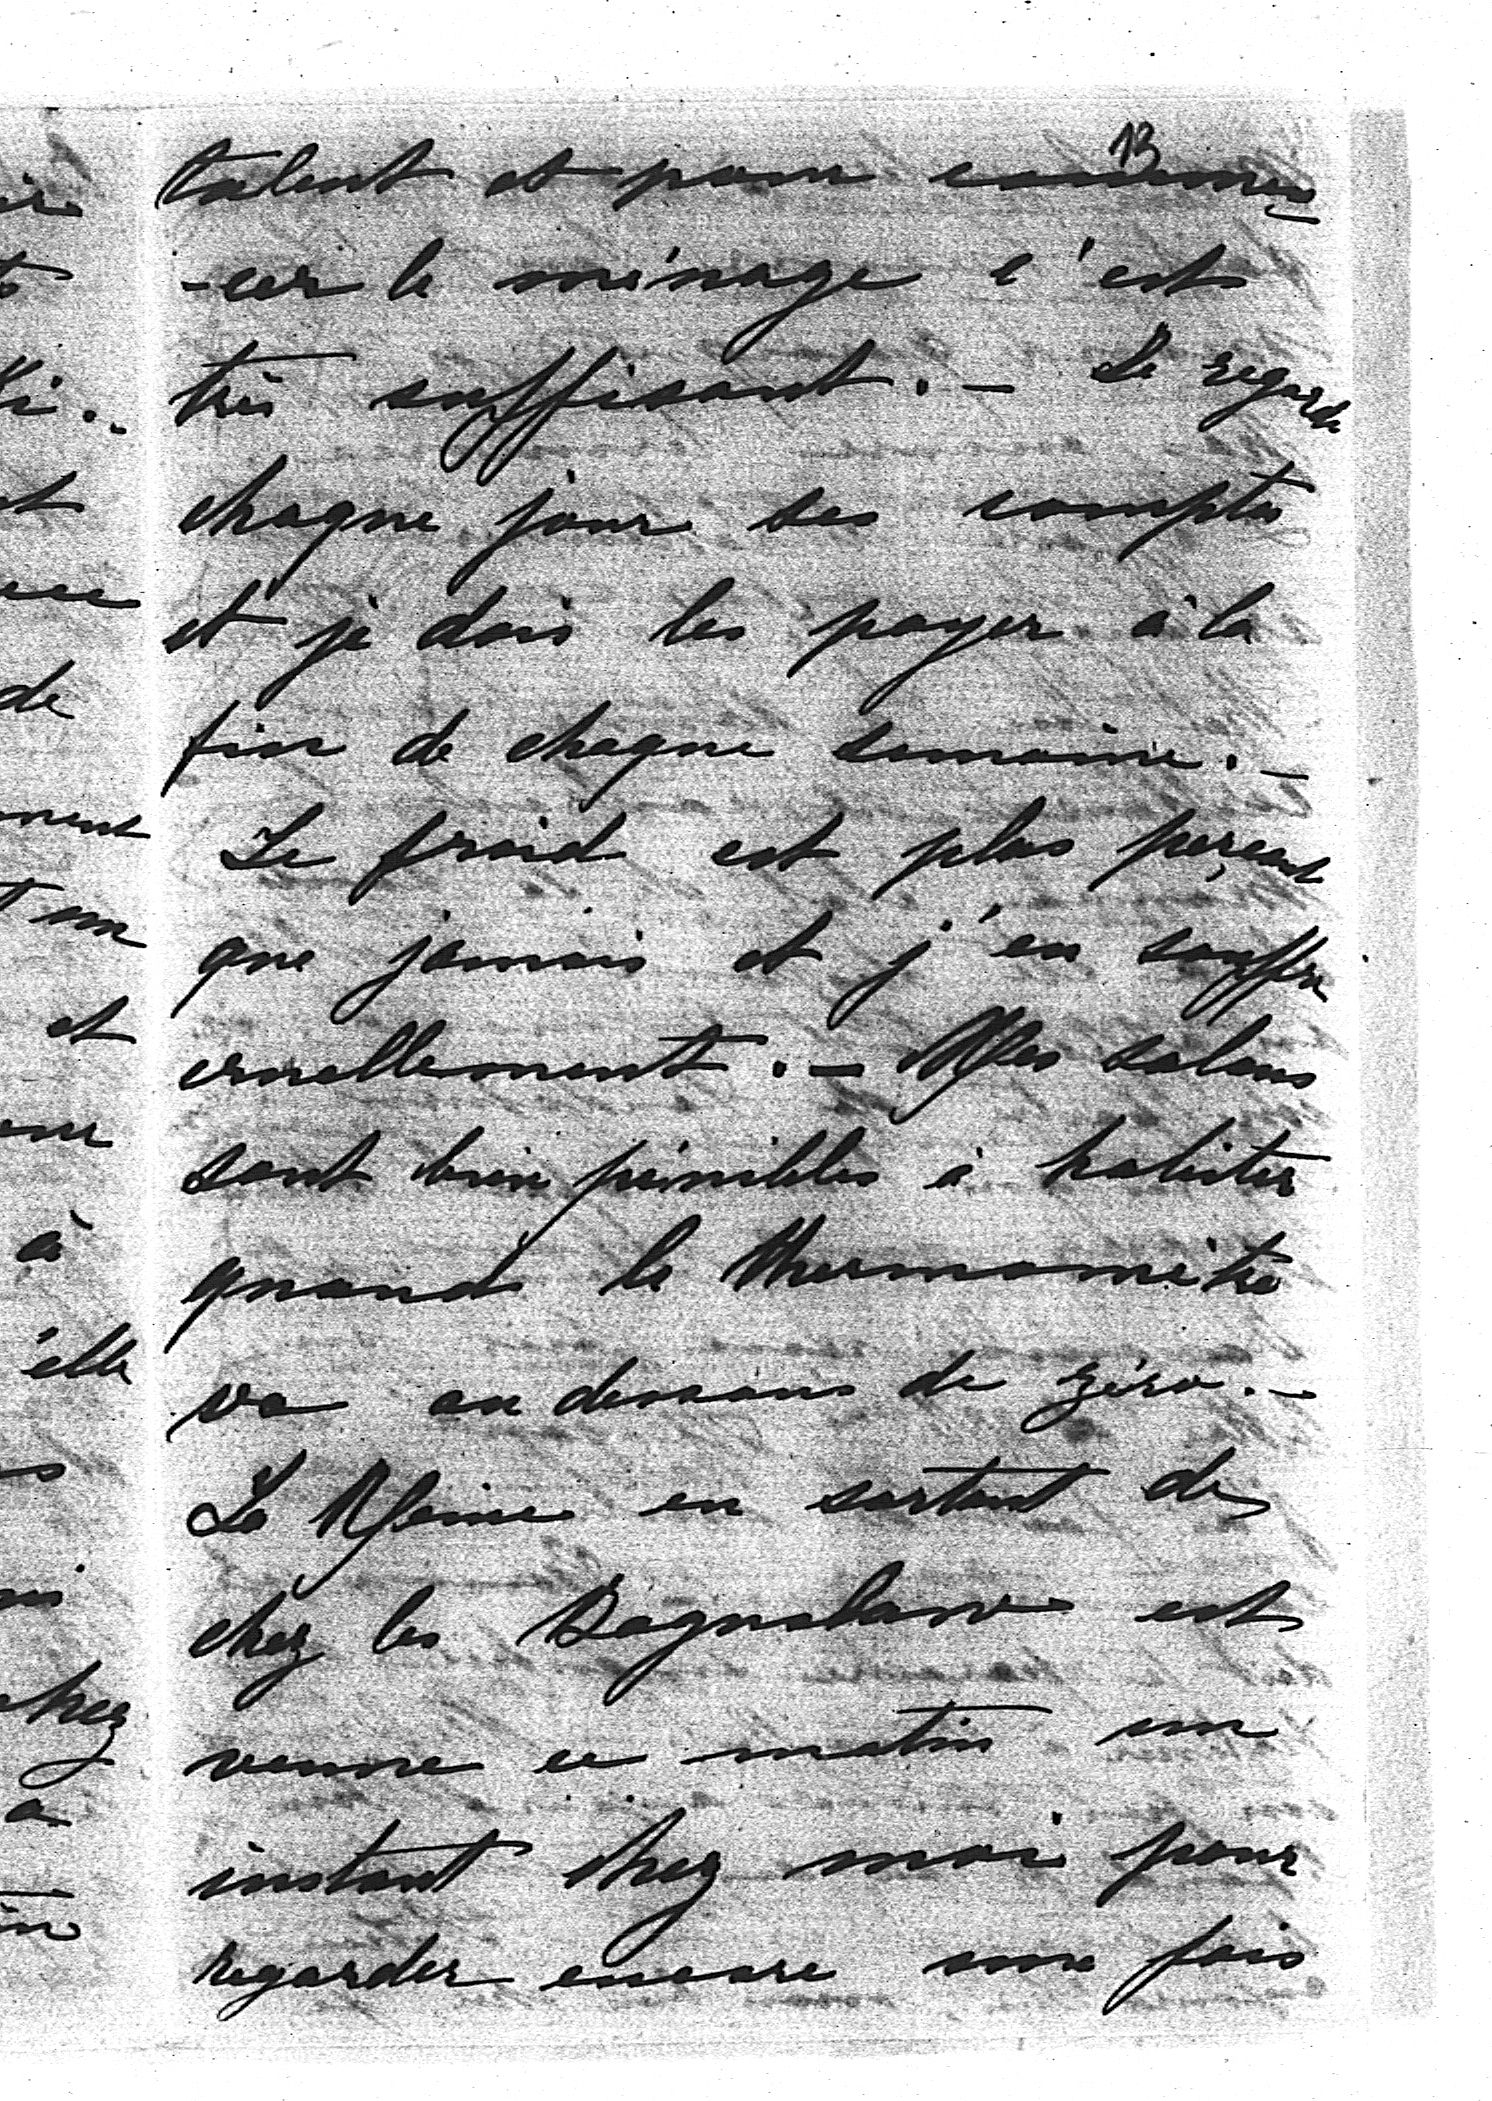 13
talent et pour commen
-cer le ménage c'est
très suffisant. - Je regarde
chaque jour ses comptes
et je dois les payer à la
fin de chaque semaine. -
Le froid est plus perçant
que jamais et j'en souffre
cruellement. - Mes salons
sont bien pénibles à habiter
quand le thermomètre
va au dessous de zéro. -
La Reine en sortant de
chez les est
venue ce matin un
instant chez moi pour
regarder encore une fois